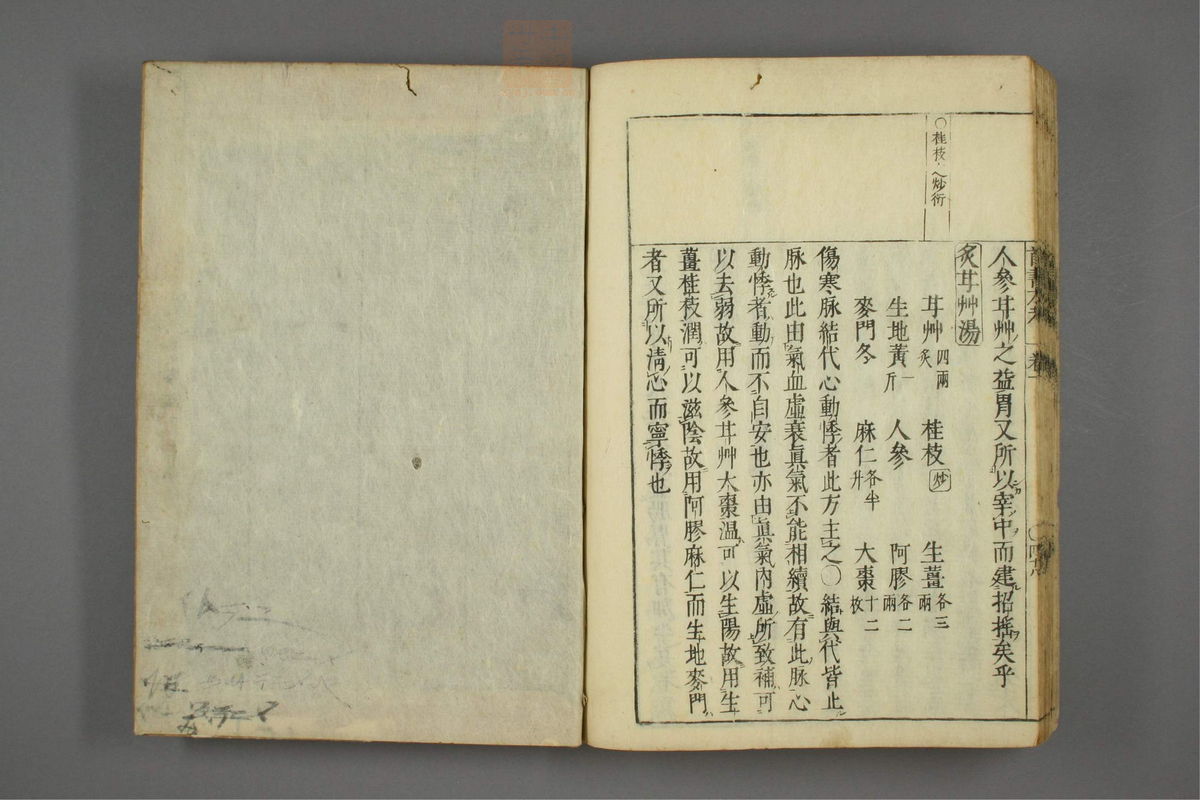 ○桂枝ノ炒衍
人參甘艸之益胃又所以宰中而建招搖矣乎
炙甘艸湯
甘艸四兩炙 桂枝炒 生薑各三兩
生地黃一斤 人參 阿膠各二兩
麥門冬 麻仁各半升 大棗十二枚
傷寒脉結代心動悸者此方主之○結與代皆止
脉也此由氣血虛衰眞氣不能相續故有此脉心
動悸者動而不自安也亦由眞氣內虛所致補可
以去弱故用人參甘艸大棗温可以生陽故用生
薑桂枝潤可以滋陰故用阿膠麻仁而生地麥門
者又所以淸心而寧悸也